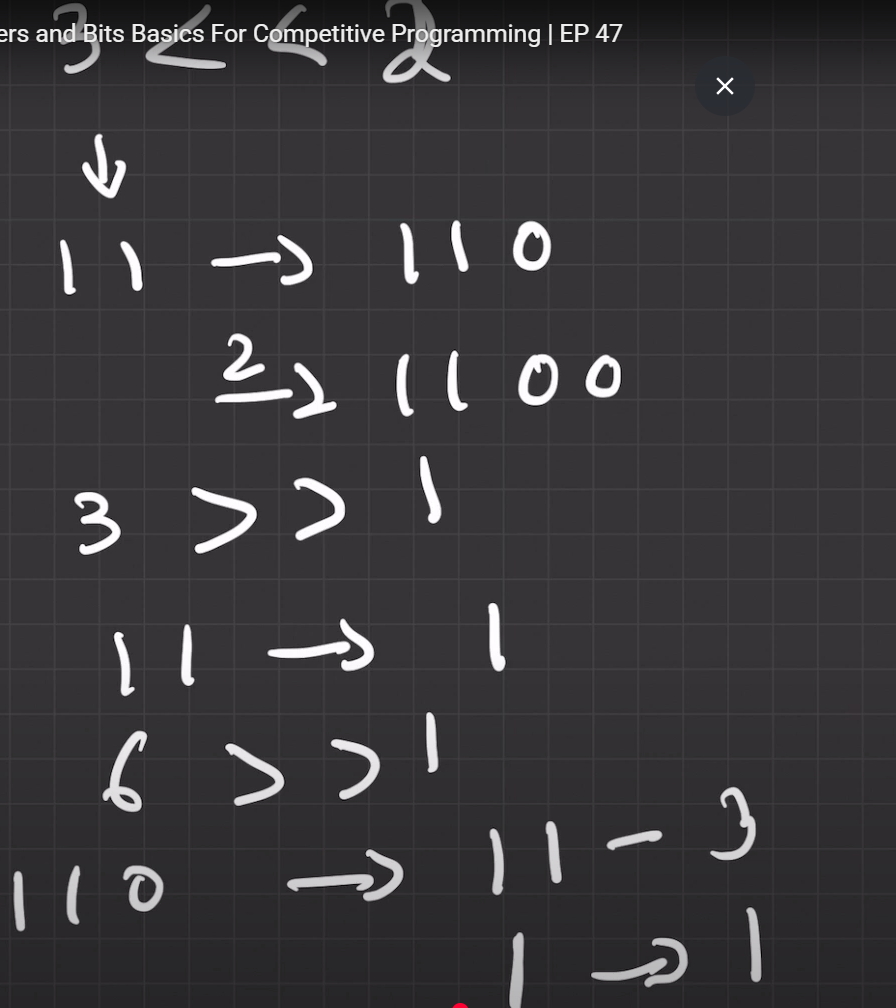 ers and Bits Basics For Competitive Programming | EP 47
3 < < 2
↓
11 → 110
2→ 1100
3 > > 1
11 → 1
6 > > 1
110 → 11 - 3
1 → 1